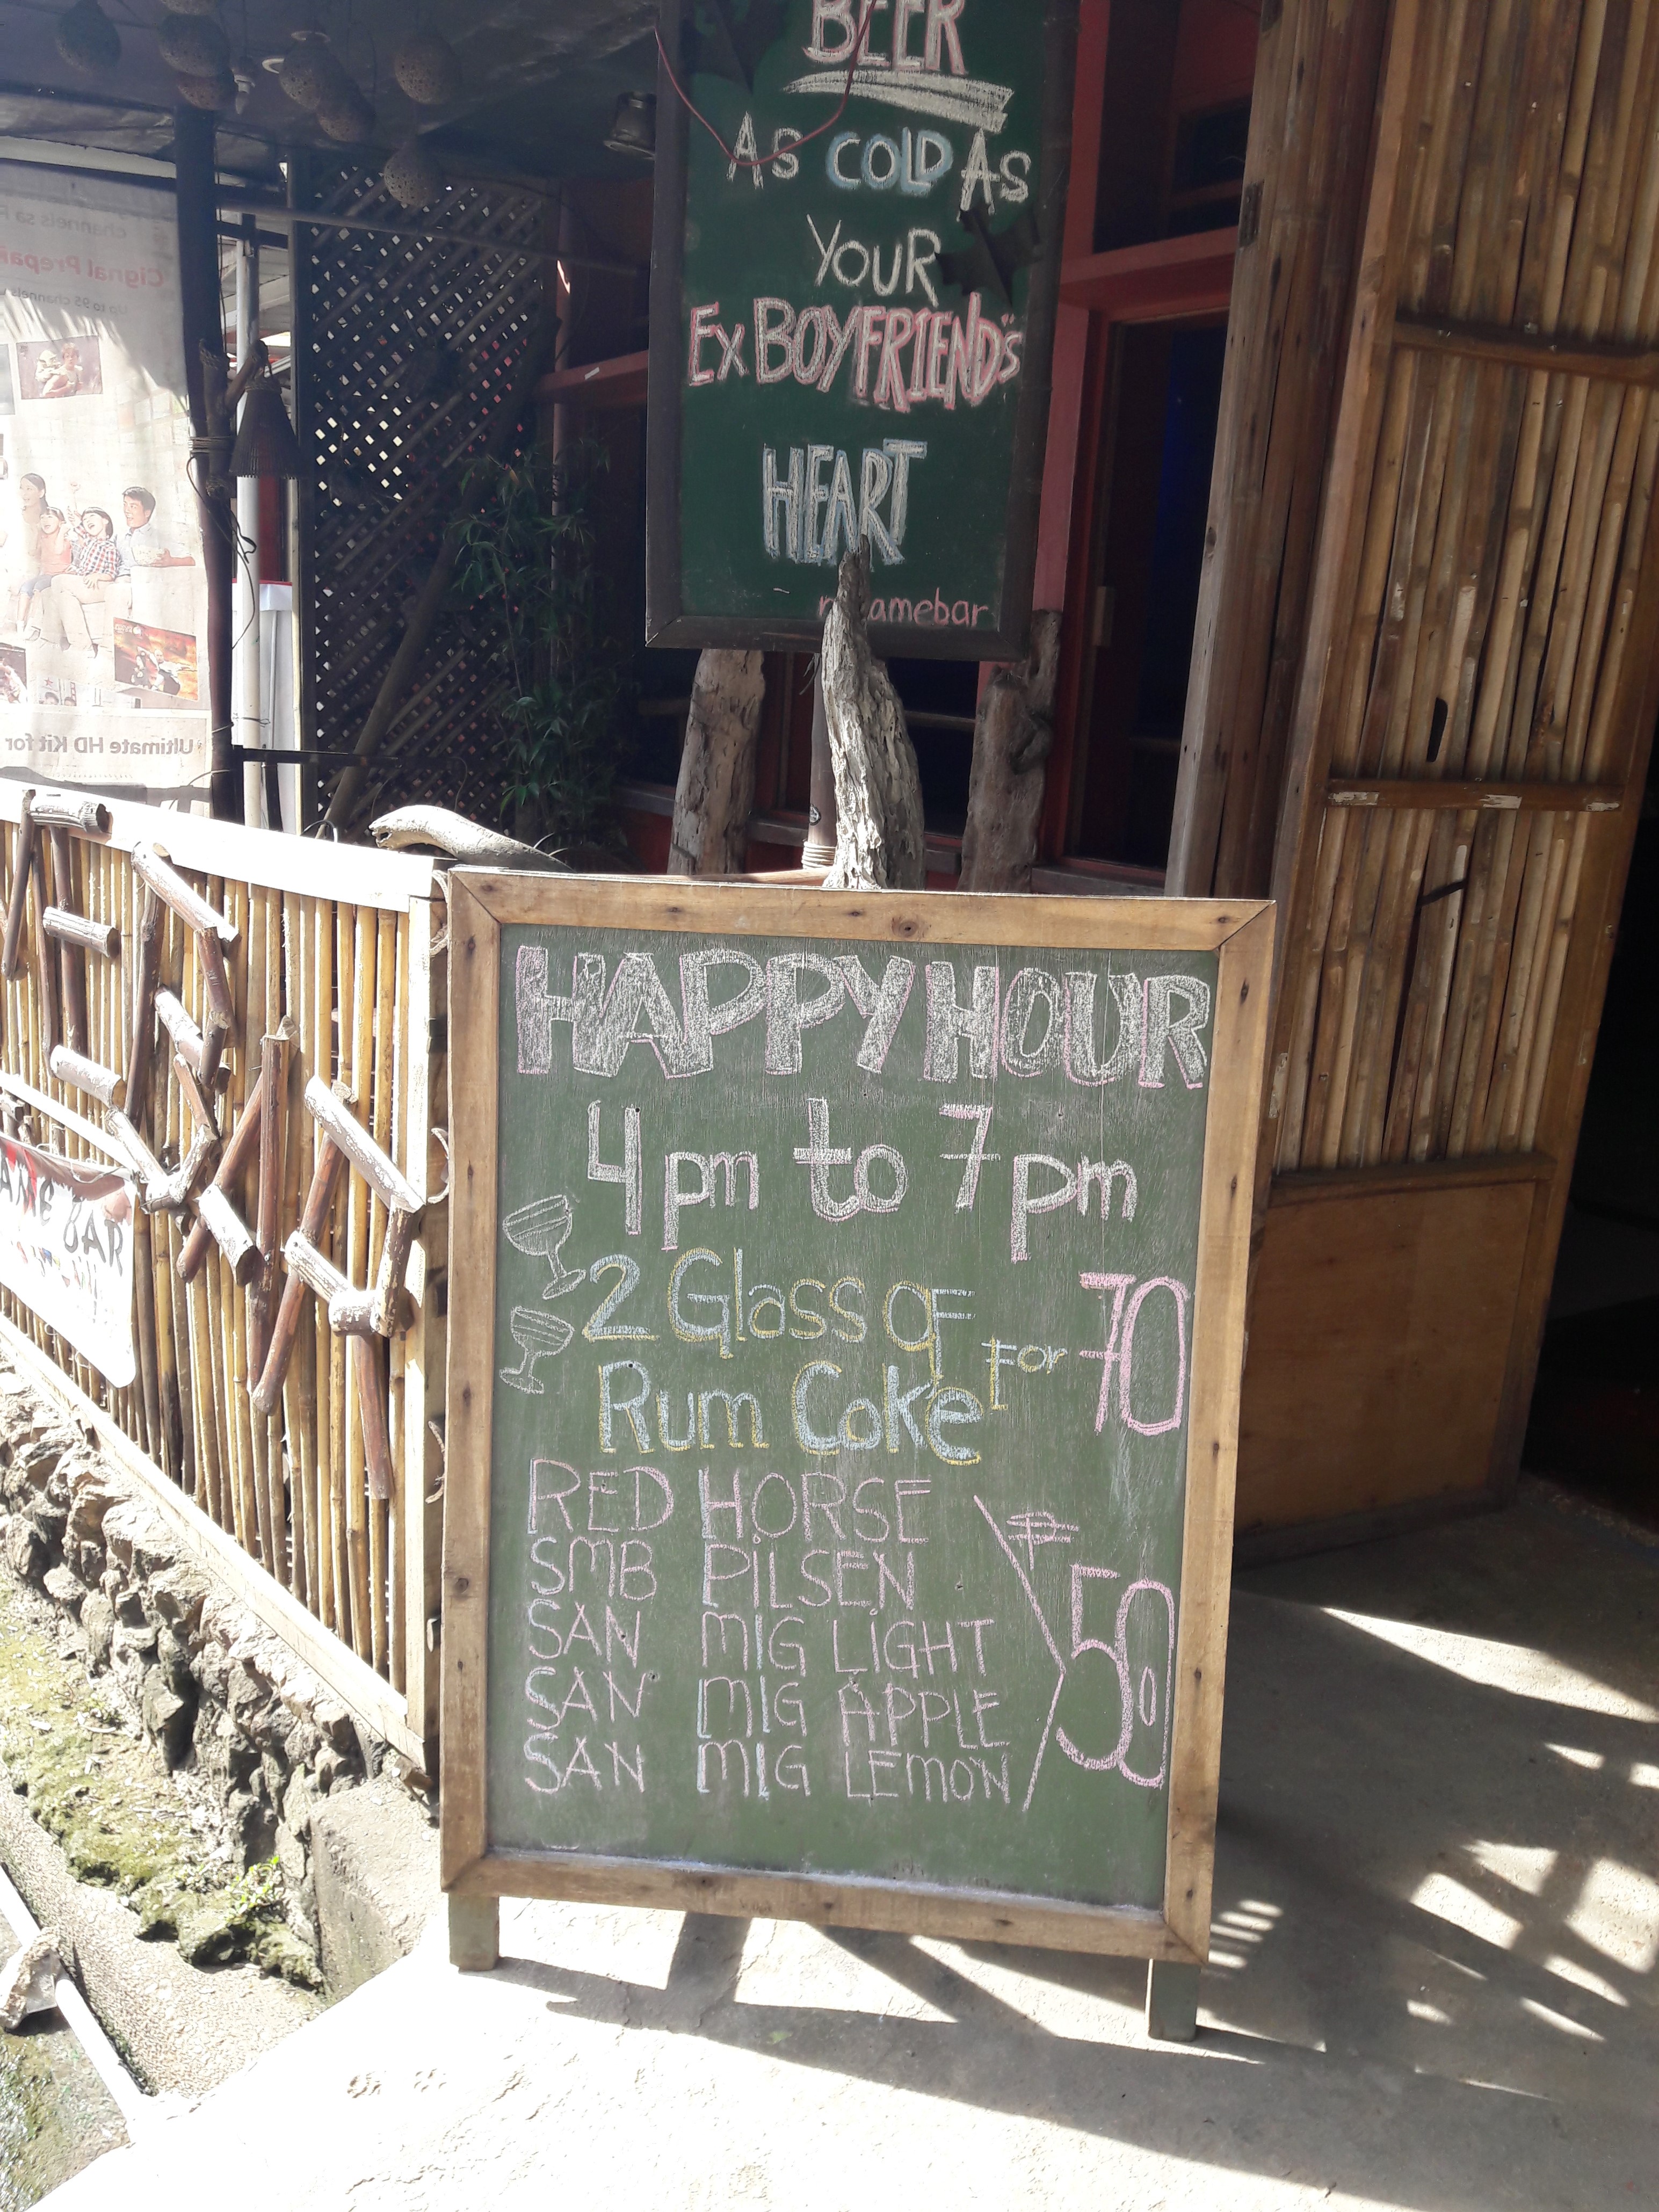 BEER
AS COLD AS
YOUR
EX BOYFRIEND'S
HEART
Cignal Prepai
Up to 95 channels
Ultimate HD Kit for
BAR
HAPPY HOUR
4 pm to 7 pm
2 Glass of
Rum Coke for 70
RED HORSE
SMB PILSEN
SAN MIG LIGHT
SAN MIG APPLE
SAN MIG LEMON
₱50